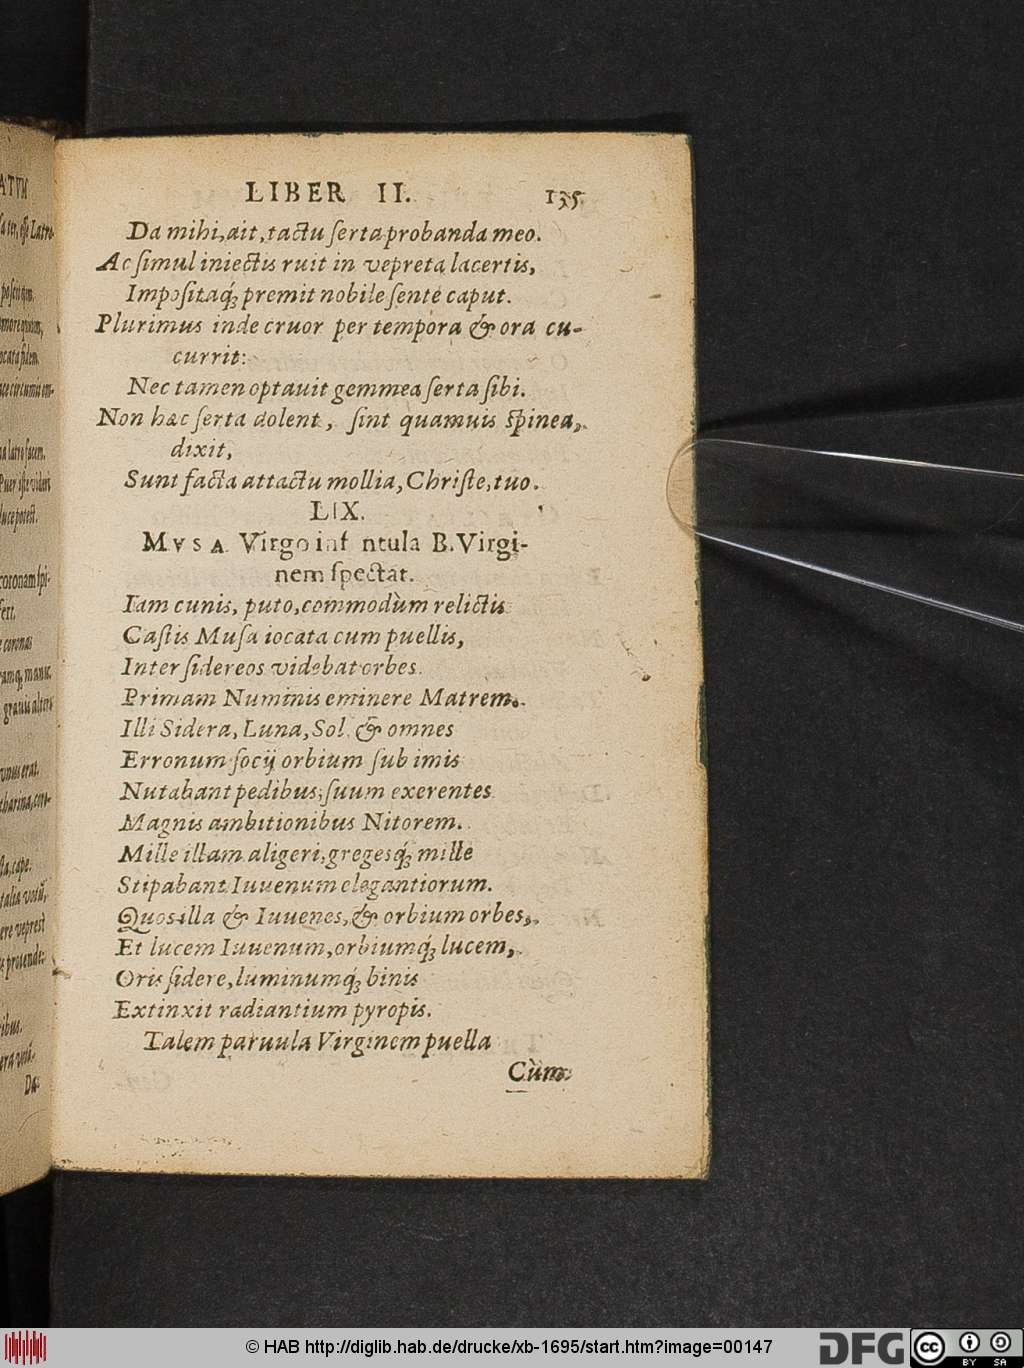 LIBER II. 135
Da mihi, ait, tactu serta probanda meo.
Ac simul iniectis ruit in vepreta lacertis,
Impositaq́; premit nobile sente caput.
Plurimus inde cruor per tempora & ora cu-
currit:
Nec tamen optauit gemmea serta sibi.
Non hæc serta dolent, sint quamuis spinea,
dixit,
Sunt facta attactu mollia, Christe, tuo.
LIX.
MVSA Virgo inf ntula B. Virgi-
nem spectat.
Iam cunis, puto, commodùm relictis
Castis Musa iocata cum puellis,
Inter sidereos videbat orbes
Primam Numinis eminere Matrem.
Illi Sidera, Luna, Sol, & omnes
Erronum socij orbium sub imis
Nutabant pedibus, suum exerentes
Magnis ambitionibus Nitorem.
Mille illam aligeri, gregesq́; mille
Stipabant Iuuenum elegantiorum.
Quos illa & Iuuenes, & orbium orbes,
Et lucem Iuuenum, orbiumq́; lucem,
Oris sidere, luminumq́; binis
Extinxit radiantium pyropis.
Talem paruula Virginem puella
Cùm
ATVM
posem
Da
© HAB http://diglib.hab.de/drucke/xb-1695/start.htm?image=00147
DFG
cc BY SA